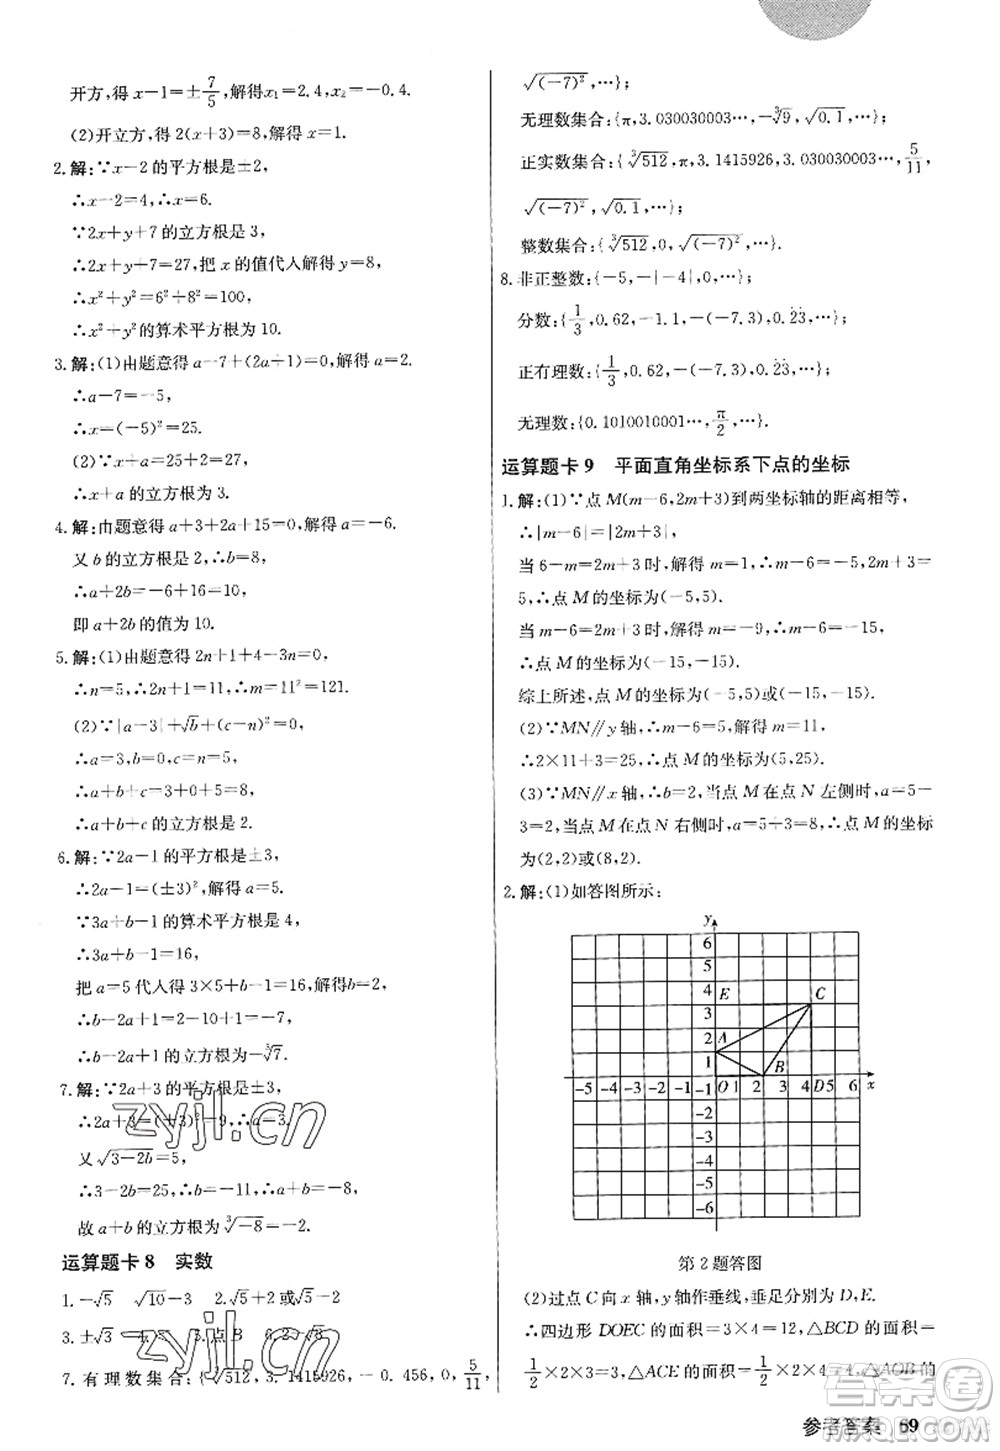 开方,得 x-1=±7/5,解得x₁=2.4,x₂=-0.4.
(2)开立方,得 2(x+3)=8,解得 x=1.
2. 解:∵x-2 的平方根是±2,
∴x-2=4,∴x=6.
∵2x+y+7 的立方根是 3,
∴2x+y+7=27,把 x 的值代入解得 y=8,
∴x²+y²=6²+8²=100,
∴x²+y²的算术平方根为 10.
3. 解:(1)由题意得 a-7+(2a+1)=0,解得 a=2.
∴a-7=-5,
∴x=(-5)²=25.
∴x+a 的平方根为
4. 解:由题意得 a+3+2a+15=0,解得 a=-6.
又 b 的立方根是 2,∴b=8,
∴a+2b=-6+16=10,
即 a+2b 的值为 10.
5. 解:(1)由题意得 2n+1+4-3n=0,
∴n=5,∴2n+1=11,∴m=11²=121.
(2)∵|a-3|+√b+(c-n)²=0,
∴a=3,b=0,c=n=5,
∴a+b+c=3+0+5=8,
∴a+b+c的立方根是 2.
6. 解:∵2a-1 的平方根是±3,
∴2a-1=(±3)²,解得 a=5.
∵3a+b-1 的算术平方根是 4,
∴3a+b-1=16,
把 a=5 代入得 3×5+b-1=16,解得 b=2,
∴b-2a+1=2-10+1=-7,
∴b-2a+1 的立方根是-∛7.
7. 解:∵2a+3 的平方根是±3,
∴2a+3=(±3)²=9,∴a=3.
又√(3-2b)=5,
∴3-2b=25,∴b=-11,∴a+b=-8,
故 a+b 的立方根为∛(-8)=-2.
运算题卡 8 实数
1. -√5 √10-3 2. √5+2 或√5-2
3. ±√3 4. 5. 点 B 6.
7. 有理数集合:{∛512,3.1415926,-0.456,0,5/11,
√((-7)²),…};
无理数集合:{π,3.030030003…,-∛9,√0.1,…};
正实数集合:{∛512,π,3.1415926,3.030030003…,5/11,
√((-7)²),√0.1,…};
整数集合:{∛512,0,√((-7)²),…}.
8. 非正整数:{-5,-|-4|,0,…};
分数:{1/3,0.62,-1.1,-(-7.3),0.2̇3̇,…};
正有理数:{1/3,0.62,-(-7.3),0.2̇3̇,…};
无理数:{0.1010010001…,π/2,…}.
运算题卡 9 平面直角坐标系下点的坐标
1. 解:(1)∵点 M(m-6,2m+3)到两坐标轴的距离相等,
∴|m-6|=|2m+3|,
当 6-m=2m+3 时,解得 m=1,∴m-6=-5,2m+3=
5,∴点 M 的坐标为(-5,5).
当 m-6=2m+3 时,解得 m=-9,∴m-6=-15,
∴点 M 的坐标为(-15,-15).
综上所述,点 M 的坐标为(-5,5)或(-15,-15).
(2)∵MN∥y 轴,∴m-6=5,解得 m=11,
∴2×11+3=25,∴点 M 的坐标为(5,25).
(3)∵MN∥x 轴,∴b=2,当点 M 在点 N 左侧时,a=5-
3=2,当点 M 在点 N 右侧时,a=5+3=8,∴点 M 的坐标
为(2,2)或(8,2).
2. 解:(1)如答图所示:
y
6
5
4 E C
3
2 A
1 B
-5 -4 -3 -2 -1 O 1 2 3 4 D 5 6 x
-1
-2
-3
-4
-5
-6
第 2 题答图
(2)过点 C 向 x 轴,y 轴作垂线,垂足分别为 D,E.
∴四边形 DOEC 的面积=3×4=12,△BCD 的面积=
1/2×2×3=3,△ACE 的面积=1/2×2×4=4,△AOB 的
参考答案 69
zyjl.cn
zyjl.cn
答案卷